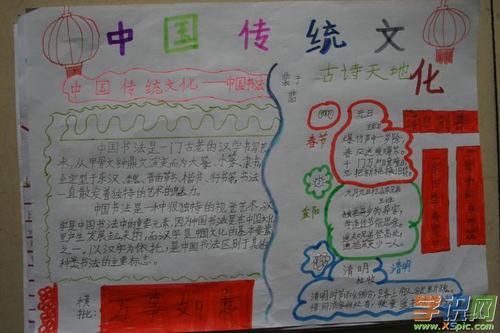 中国传统文化
中国传统文化——中国书法
中国书法是一门古老的汉字书写艺
术,从甲骨文钟鼎文演变而为大篆、小篆、隶书,
至定型于东汉、魏晋的草书、楷书、行书等,书法一
直散发着独特的艺术的魅力。
中国书法是一种很独特的视觉艺术,汉
字是中国书法中的重要元素,因为中国书法是在中国文化
里产生、发展起来的,而汉字是中国文化的基本要素
之一,以汉字为依托,是中国书法区别于其他
种类书法的主要标志。
横
批:
如意
古诗天地
春节
元日
王安石
爆竹声中一岁除
春风送暖入屠苏
千门万户曈曈日
总把新桃换旧符
重阳
九月九日忆山东兄弟
王维
独在异乡为异客,
每逢佳节倍思亲。
遥知兄弟登高处,
遍插茱萸少一人。
清明
杜牧
清明
清明时节雨纷纷,路上行人欲断魂。
借问酒家何处有,牧童
学识网
www.XSpic.com